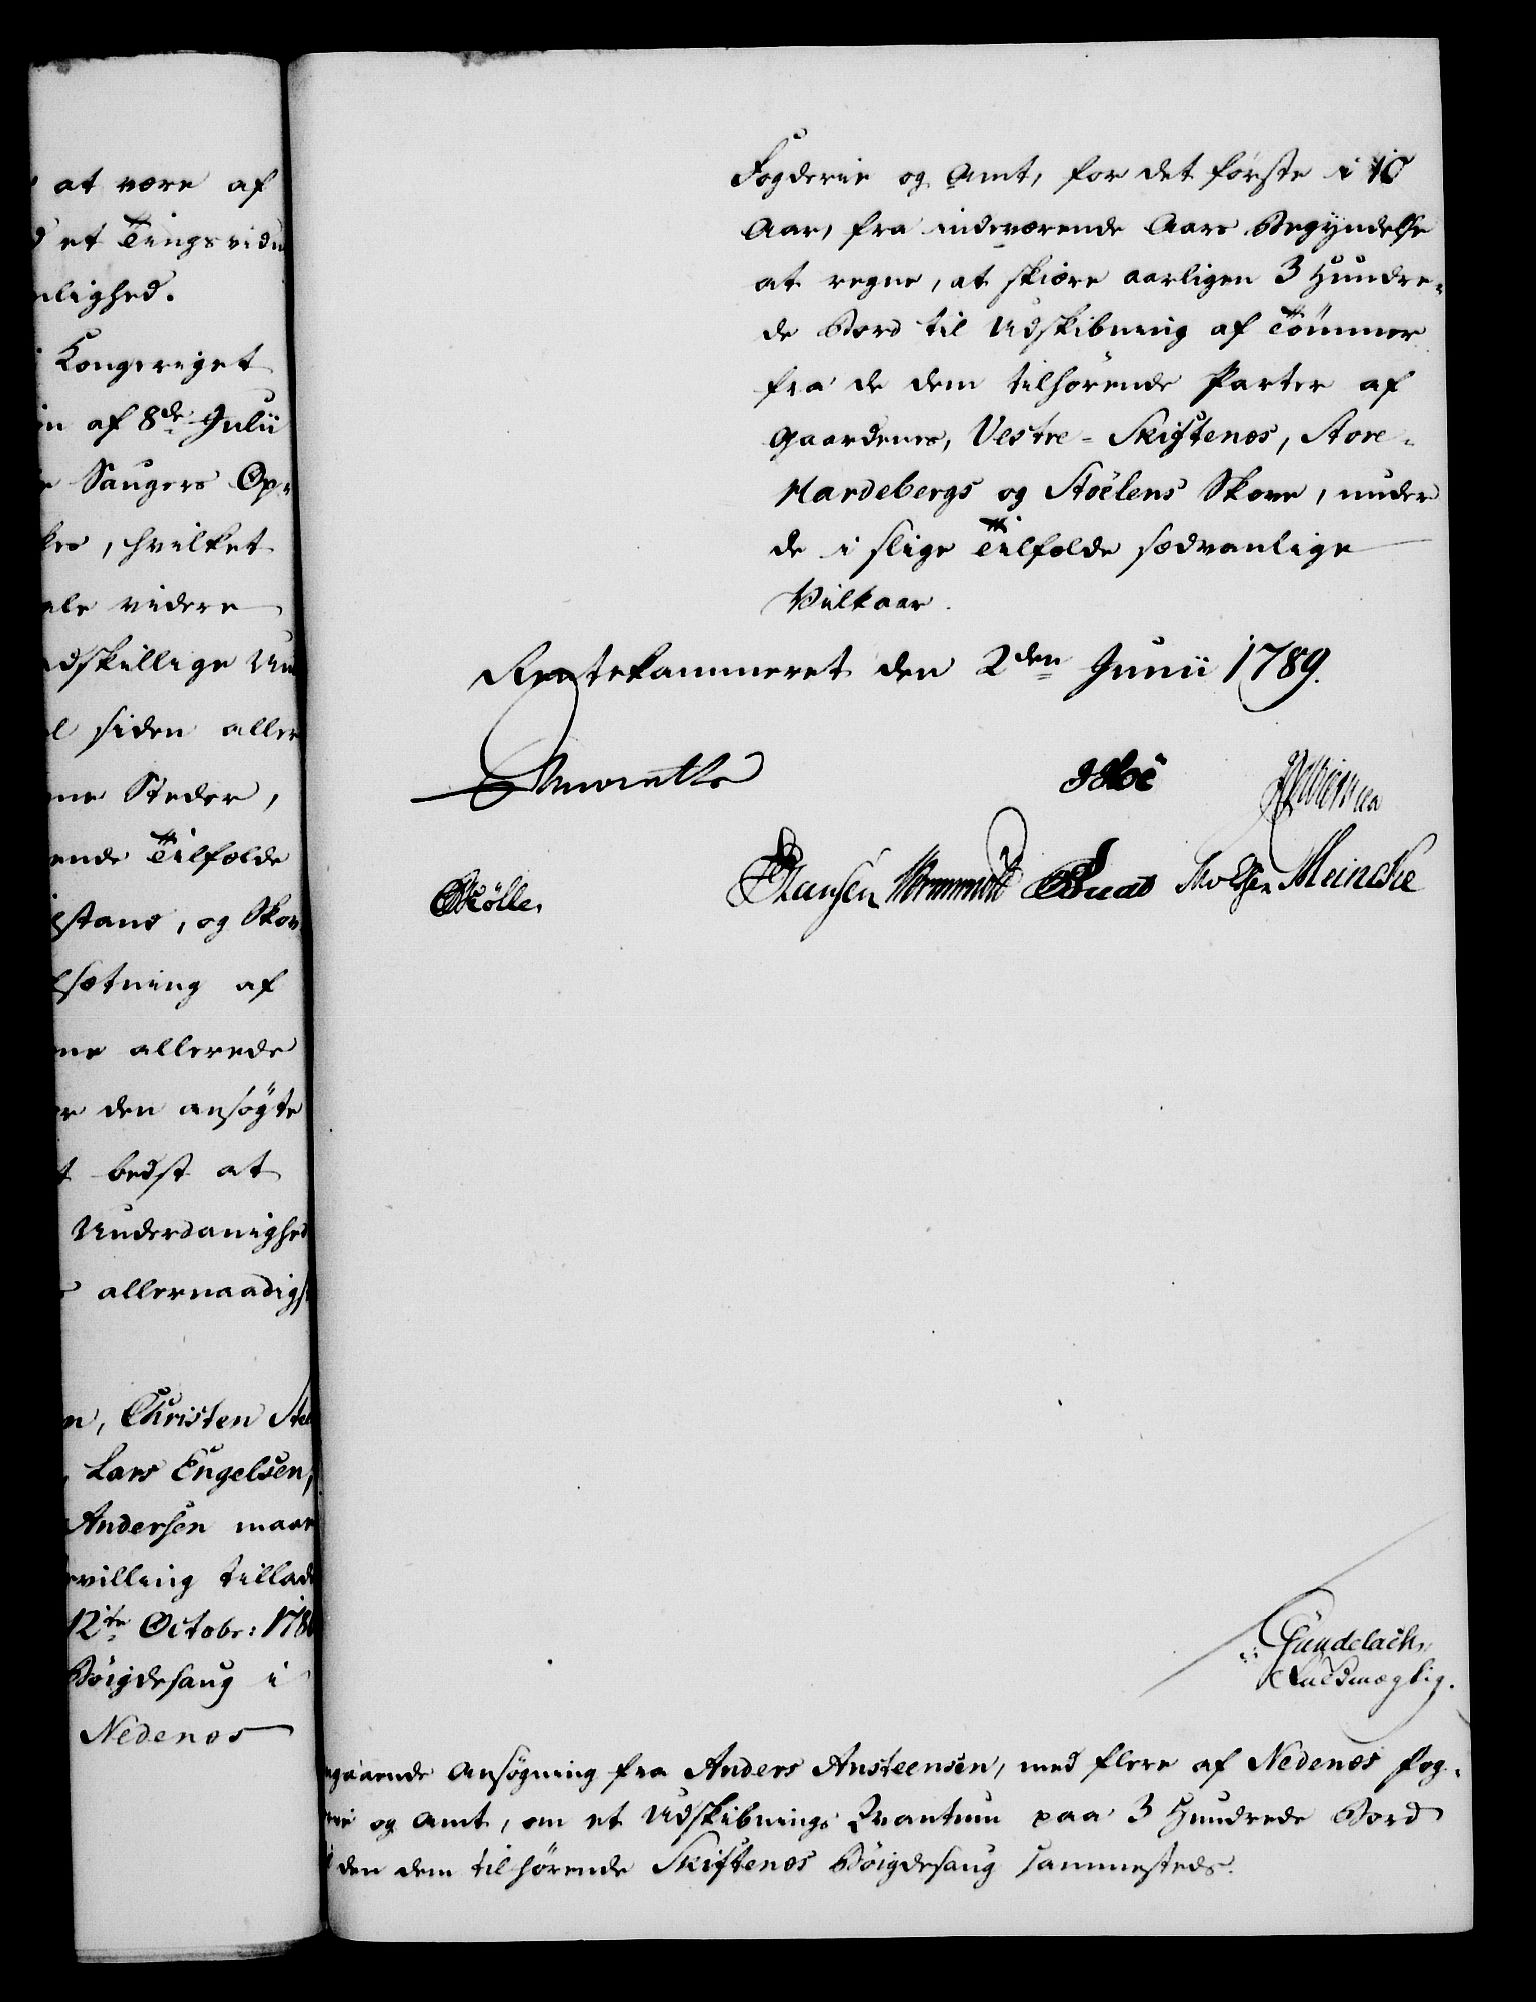 at være af
et Tingsvidn
nlighed.
Kongeriget
af 8de Julii
Saugers Op-
kes, hvilket
videre
adskillige
siden aller
Steder,
ende Tilfælde
stand, og Skov
sætning af
allerede
den ansøgte
bedst at
Underdanighed
allernaadigst
n, Christen
Lars Engelsen,
Andersen maae
evilling tillad
12te Octobr: 178
Bøigdesaug i
Nedenæs
Fogderie og Amt, for det første i 10
Aar, fra indeværende Aars Begyndelse
at regne, at skiære aarligen 3 Hundre-
de Bord til Udskibning af Tømmer
fra de dem tilhørende Parter af
Gaardenes, Vestre-Skiftenes, Store-
Mardebergs og Støelens Skove, under
de i slige Tilfælde sædvanlige
Vilkaar.
Rentekammeret den 2den Junii 1789.
Hoë
Mølle.
Hansen Wormskiold Meincke
Gundelach.
Fuldmægtig.
ngaaende Ansøgning fra Anders Ansteensen, med flere af Nedenes Fog-
rie og Amt, om et Udskibnings Qvantum paa 3 Hundrede Bord
den dem tilhørende Skiftenes Bøigdesaug sammesteds.